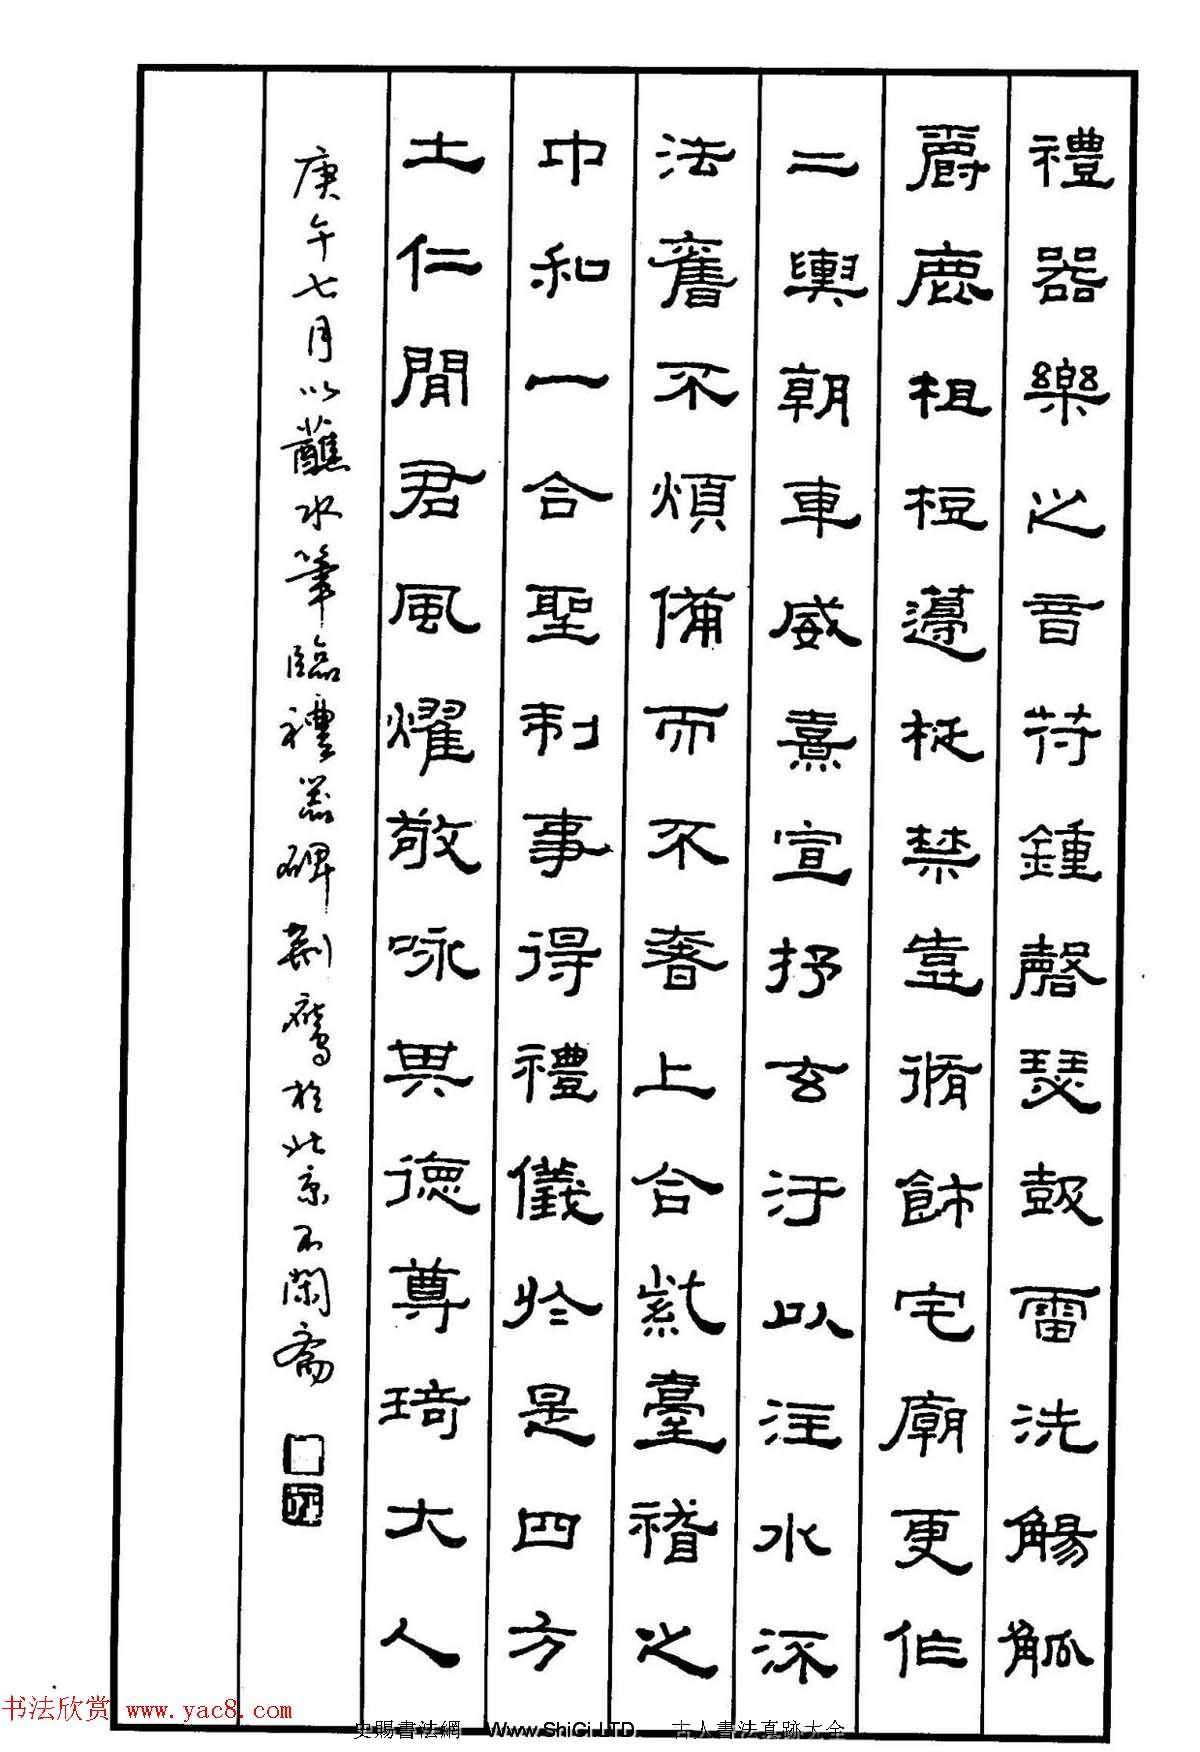 禮器樂之音苻鍾磬瑟鼓雷洗觴觚
爵鹿柤梪籩柉禁壺脩飾宅廟更作
二輿朝車威熹宣抒玄汙以注水流
法舊不煩備而不奢上合紫臺稽之
中和下合聖制事得禮儀於是四方
士仁聞君風燿敬咏其德尊琦大人
庚午七月以蘸水筆臨禮器碑荊鷹於北京不閑齋
书法欣赏 www.yac8.com
史賜書法網 Www.ShiCi.LTD. 古人書法真跡大全